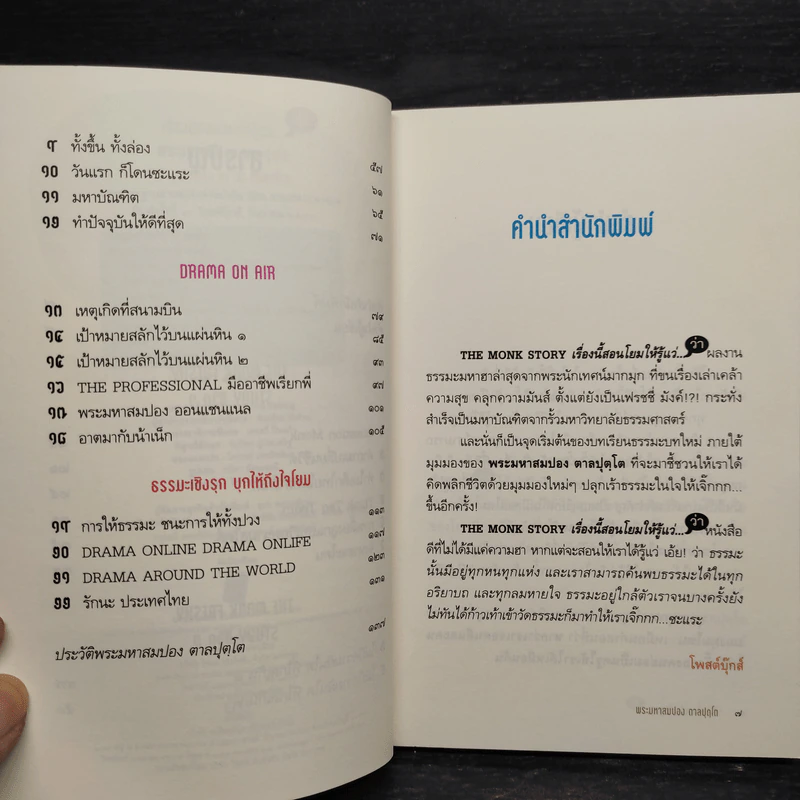 ๙ ทั้งขึ้น ทั้งล่อง ๕๗
๑๐ วันแรก ก็โดนซะแระ ๖๑
๑๑ มหาบัณฑิต ๖๕
๑๒ ทำปัจจุบันให้ดีที่สุด ๗๑
DRAMA ON AIR
๑๓ เหตุเกิดที่สนามบิน ๗๙
๑๔ เป้าหมายสลักไว้บนแผ่นหิน ๑ ๘๕
๑๕ เป้าหมายสลักไว้บนแผ่นหิน ๒ ๙๓
๑๖ THE PROFESSIONAL มืออาชีพเรียกพี่ ๙๗
๑๗ พระมหาสมปอง ออนแชนแนล ๑๐๑
๑๘ อาตมากับน้าเน็ก ๑๐๕
ธรรมะเชิงรุก บุกให้ถึงใจโยม
๑๙ การให้ธรรมะ ชนะการให้ทั้งปวง ๑๑๓
๒๐ DRAMA ONLINE DRAMA ONLIFE ๑๑๗
๒๑ DRAMA AROUND THE WORLD ๑๒๓
๒๒ รักนะ ประเทศไทย ๑๓๑
ประวัติพระมหาสมปอง ตาลปุตฺโต ๑๓๗
คำนำสำนักพิมพ์
THE MONK STORY เรื่องนี้สอนโยมให้รู้แว่...ว่า ผลงาน
ธรรมะมหาฮาล่าสุดจากพระนักเทศน์มากมุก ที่ขนเรื่องเล่าเคล้า
ความสุข คลุกความมันส์ ตั้งแต่ยังเป็นเฟรชชี่ มังค์!?! กระทั่ง
สำเร็จเป็นมหาบัณฑิตจากรั้วมหาวิทยาลัยธรรมศาสตร์
และนั่นก็เป็นจุดเริ่มต้นของบทเรียนธรรมะบทใหม่ ภายใต้
มุมมองของ พระมหาสมปอง ตาลปุตฺโต ที่จะมาชี้ชวนให้เราได้
คิดพลิกชีวิตด้วยมุมมองใหม่ๆ ปลุกเร้าธรรมะในใจให้เจิ๊กกก...
ขึ้นอีกครั้ง!
THE MONK STORY เรื่องนี้สอนโยมให้รู้แว่...ว่า หนังสือ
ดีที่ไม่ได้มีแค่ความฮา หากแต่จะสอนให้เราได้รู้แว่ เอ้ย! ว่า ธรรมะ
นั้นมีอยู่ทุกหนทุกแห่ง และเราสามารถค้นพบธรรมะได้ในทุก
อริยาบถ และทุกลมหายใจ ธรรมะอยู่ใกล้ตัวเราจนบางครั้งยัง
ไม่ทันได้ก้าวเท้าเข้าวัดธรรมะก็มาทำให้เราเจิ๊กกก...ซะแระ
โพสต์บุ๊กส์
พระมหาสมปอง ตาลปุตฺโต ๗